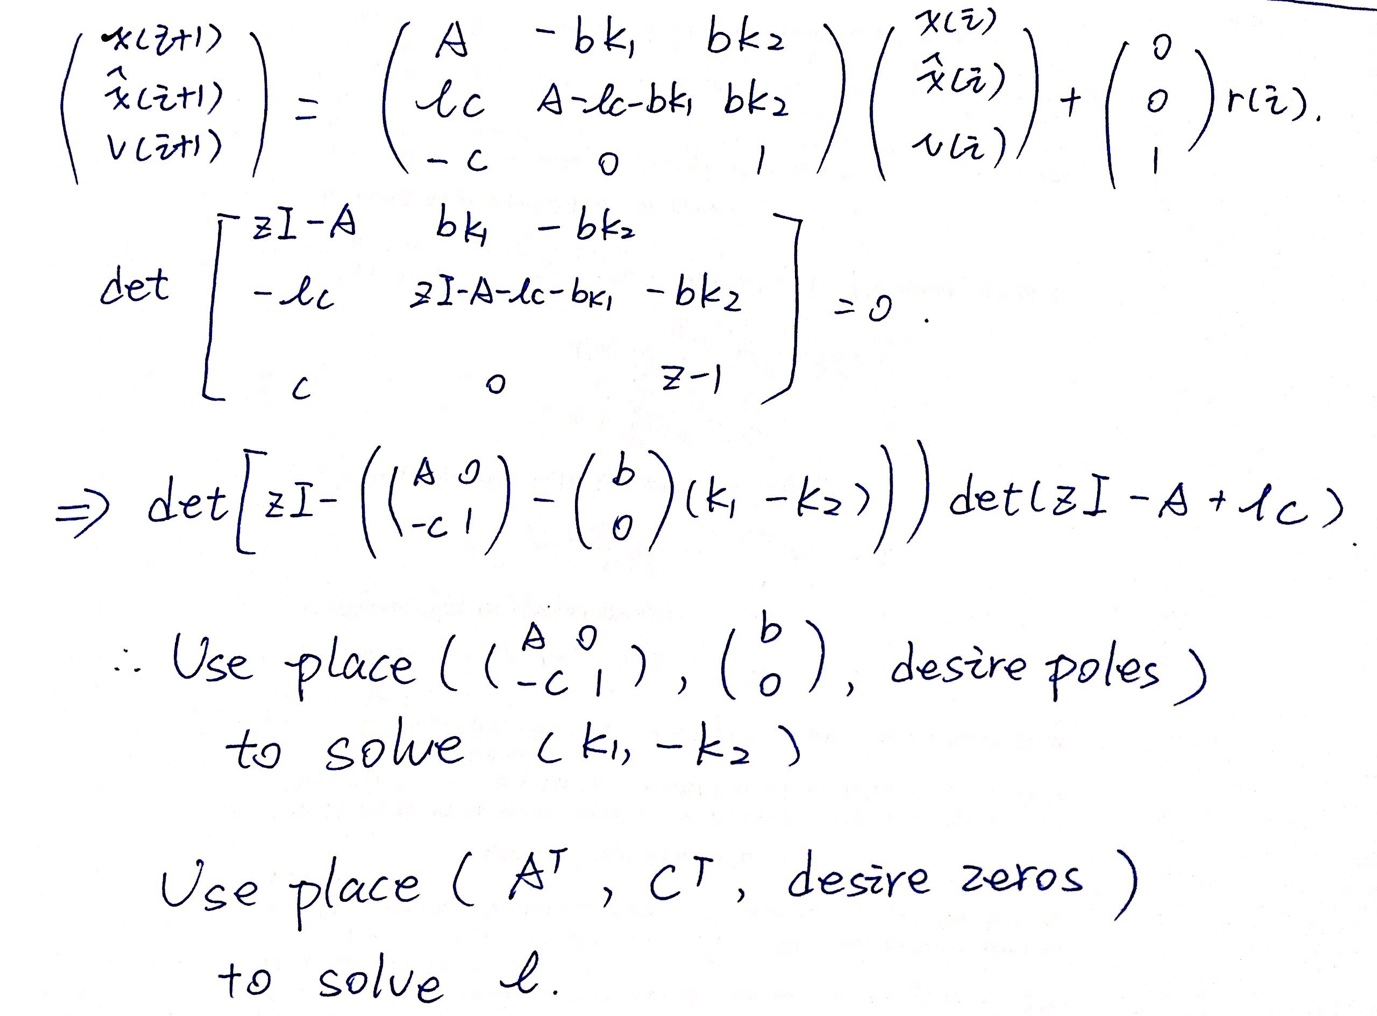 ( x(i+1) x̂(i+1) v(i+1) ) = ( A -bk₁ bk₂ ; lc A-lc-bk₁ bk₂ ; -c 0 1 ) ( x(i) x̂(i) v(i) ) + ( 0 0 1 ) r(i).
det [ zI-A bk₁ -bk₂ ; -lc zI-A-lc-bk₁ -bk₂ ; c 0 z-1 ] = 0.
⇒ det[ zI-( ( A 0 ; -c 1 ) - ( b ; 0 ) (k₁ -k₂) ) ) det(zI-A+lc).
∴ Use place ( ( A 0 ; -c 1 ), ( b ; 0 ), desire poles )
to solve (k₁, -k₂)
Use place ( Aᵀ, Cᵀ, desire zeros )
to solve l.